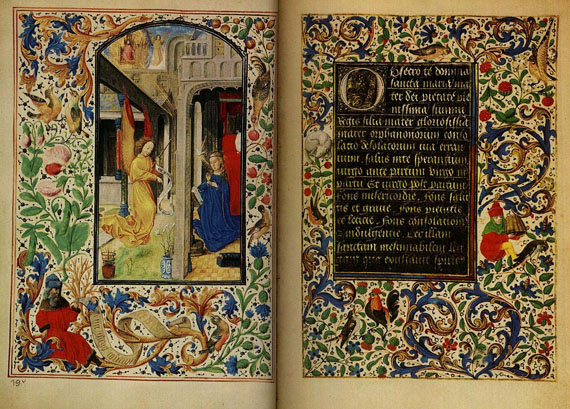 Obsecro te domina
sancta maria ma
ter dei pietate ple
nissima summi
Regis filia mater gloriosissi
mater orphanorum con
solatio desolatorum via erran
tium salus in te sperantium
virgo ante partum virgo in
partu Et virgo post partum
fons misericordie fons salu
tis et gratie fons pietatis
et leticie fons consolationis
et indulgentie Per illam
sanctam
19v